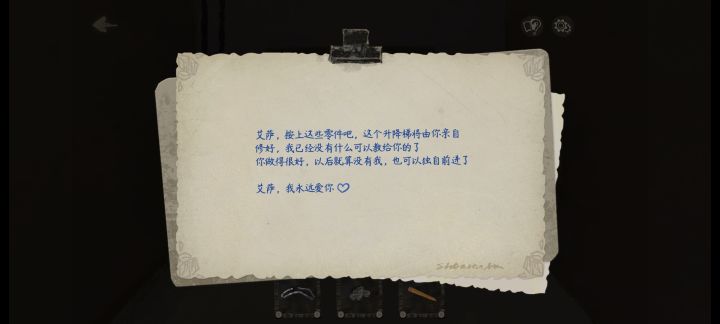 艾萨，按上这些零件吧，这个升降梯将由你亲自
修好，我已经没有什么可以教给你的了
你做得很好，以后就算没有我，也可以独自前进了
艾萨，我永远爱你♡